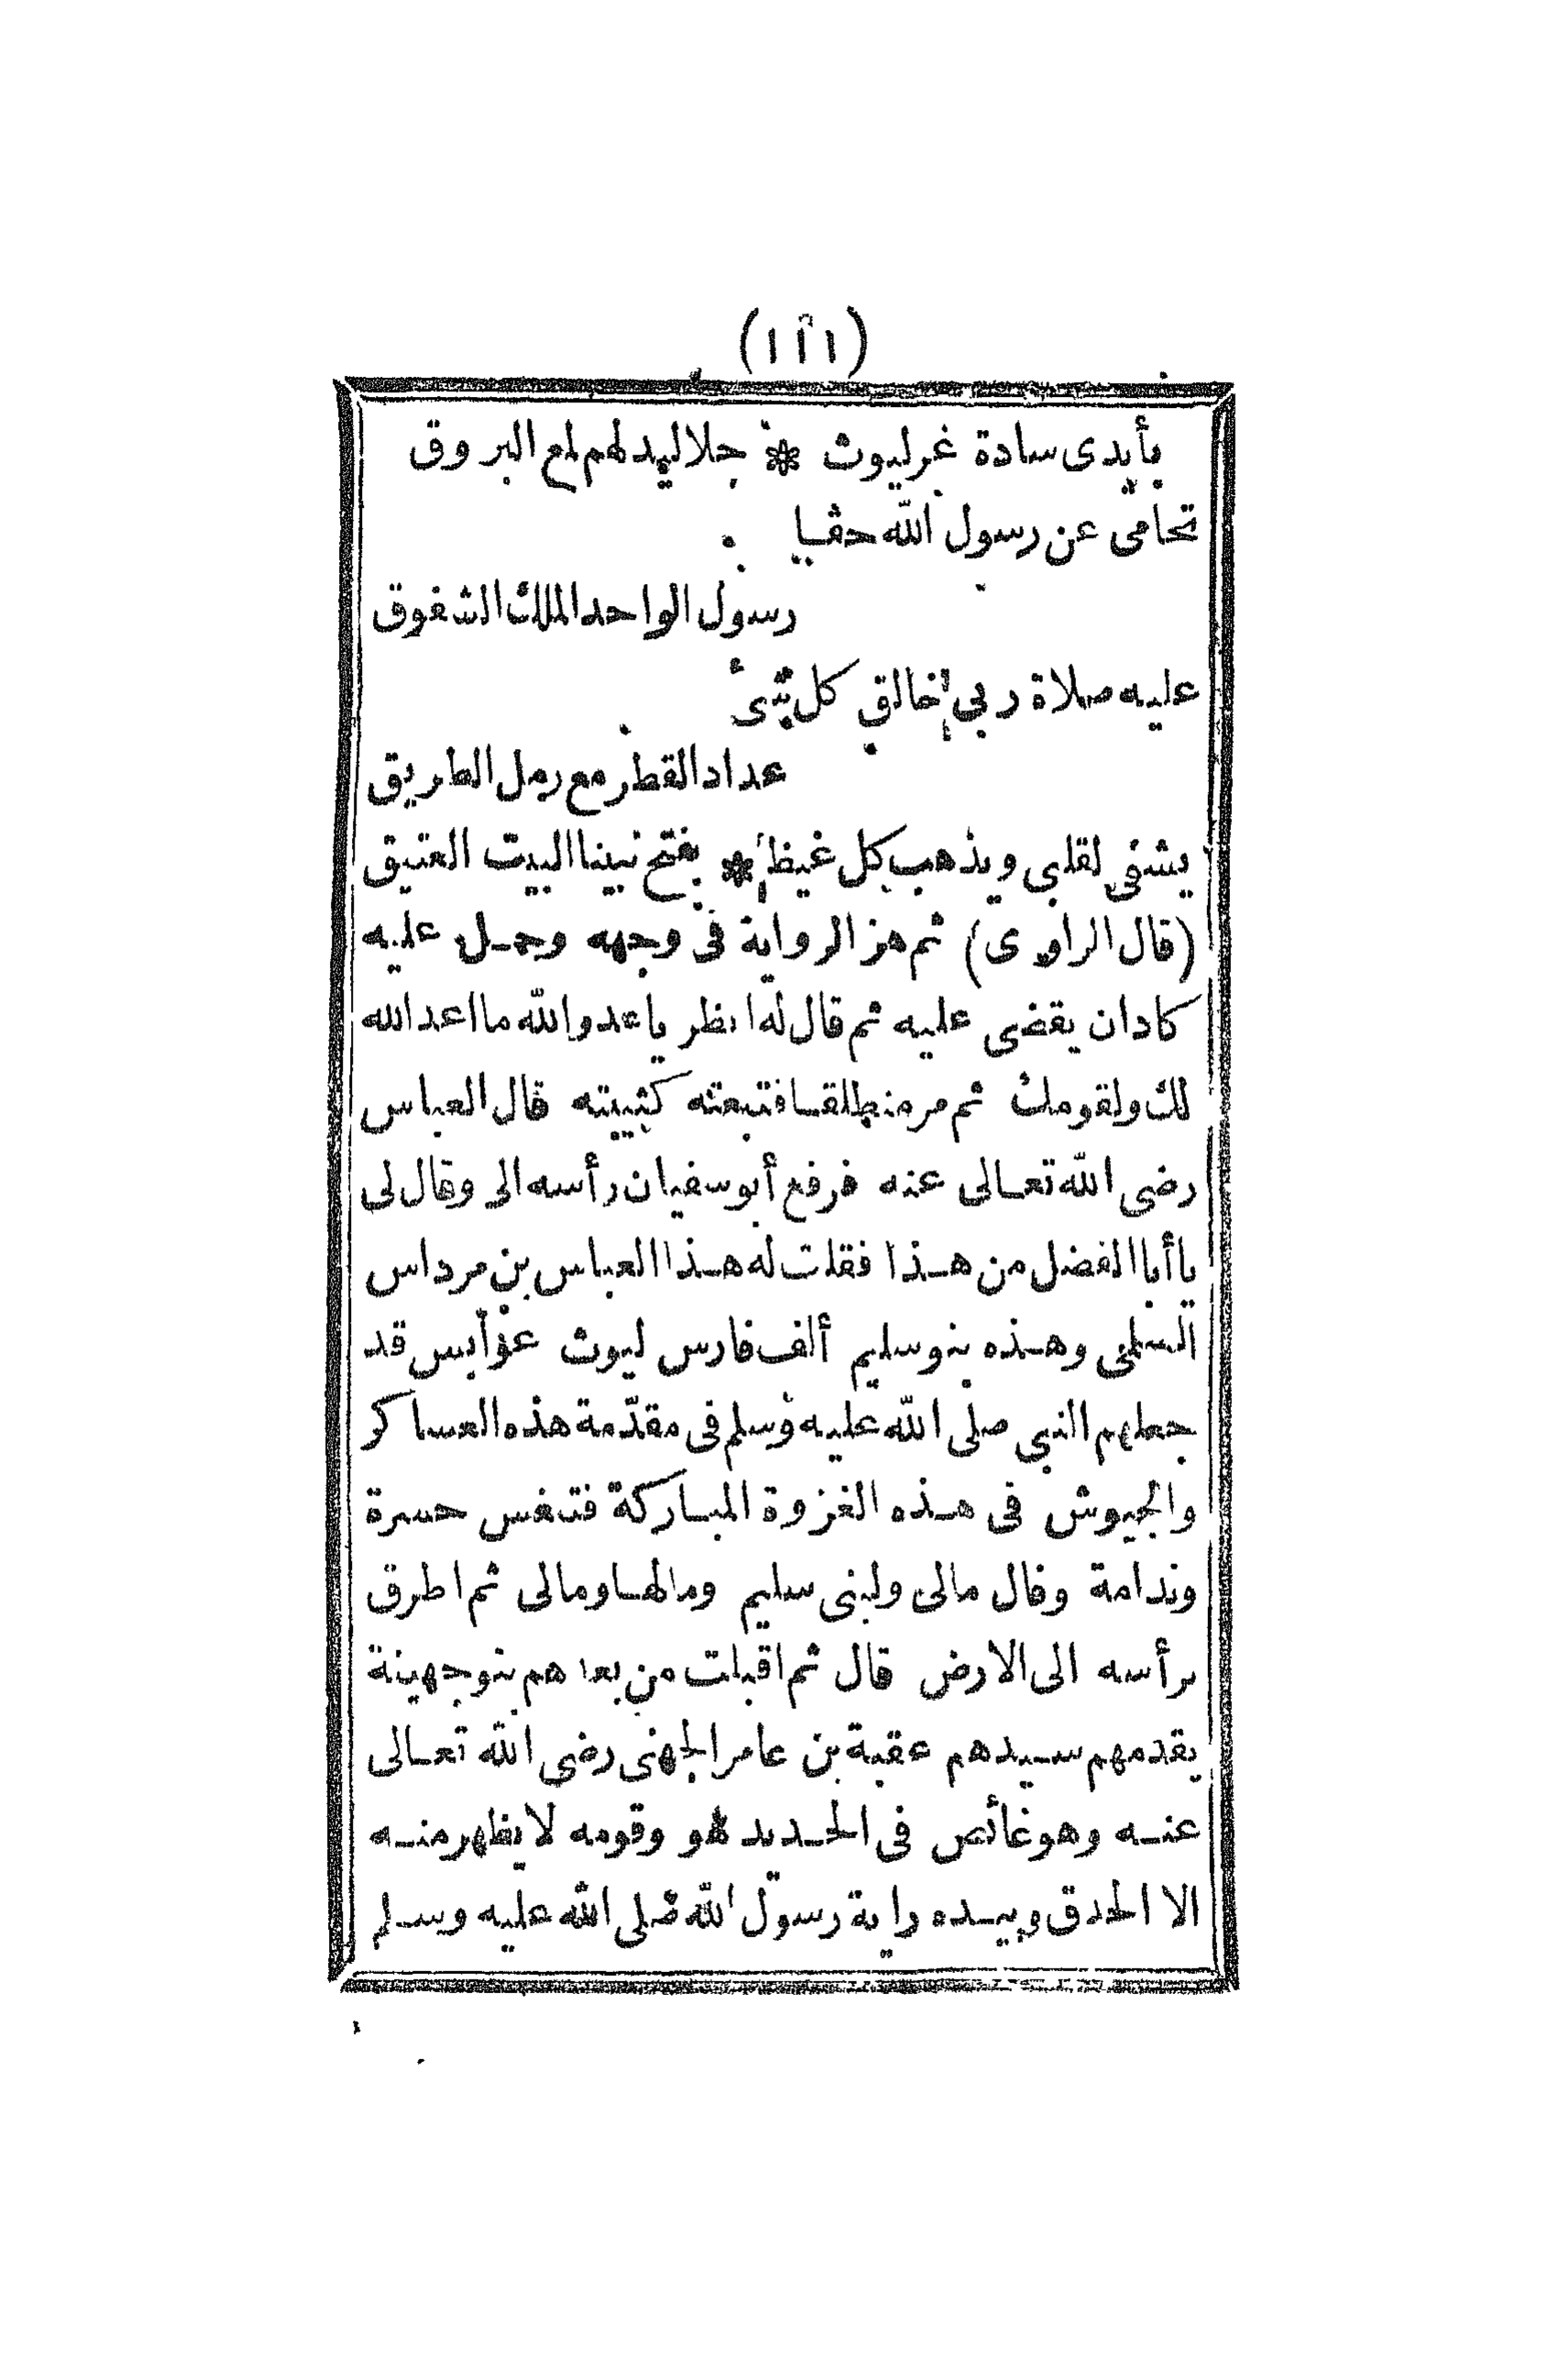 (١١١)
بأيدى سادة غر ليوث * جلاليد لهم لمع البروق
تحامى عن رسول الله حقا
رسول الواحد الملك الشفوق
عليه صلاة ربى خالق كل شئ
عداد القطر مع رمل الطريق
يشفى لقلبى ويذهب كل غيظ * بفتح نبينا البيت العتيق
(قال الراوى) ثم هز الرواية فى وجهه وحمل عليه
كادان يقضى عليه ثم قال له انظر ياعدو الله ما اعد الله
لك ولقومك ثم مر منطلقا فتبعته كثيبته قال العباس
رضى الله تعالى عنه فرفع أبو سفيان رأسه الى وقال لى
يا أبا الفضل من هذا فقلت له هذا العباس بن مرداس
السلمى وهذه بنو سليم ألف فارس ليوث عوابس قد
جعلهم النبى صلى الله عليه وسلم فى مقدّمة هذه العساكر
والجيوش فى هذه الغزوة المباركة فتنفس حسرة
وندامة وقال مالى ولبنى سليم ومالها ومالى ثم اطرق
برأسه الى الارض قال ثم اقبلت من بعدهم بنو جهينة
يقدمهم سيدهم عقبة بن عامر الجهنى رضى الله تعالى
عنه وهو غائص فى الحديد هو وقومه لا يظهر منه
الا الحدق وبيده راية رسول الله صلى الله عليه وسلم